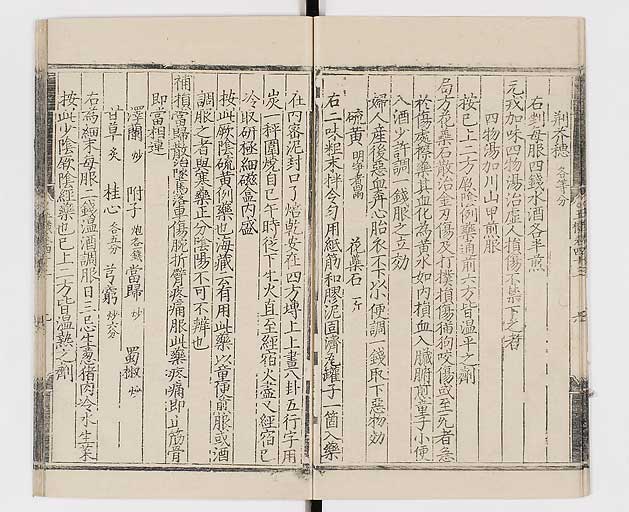 荆芥穂 各等分
右剉每服四錢水酒各半煎
元戎加味四物湯治虛人損傷不禁下之者
四物湯加川山甲煎服
按已上二方厥陰例藥通前六方皆溫平之劑
局方花蘂石散治金刃傷及打撲損傷猫狗咬傷或至死者急
於傷處摻藥其血化為黃水如內損血入臟腑煎童子小便
入酒少許調一錢服之立効
婦人産後惡血奔心胎衣不下以小便調一錢取下惡物効
硫黃 明淨者四兩 花蘂石 一斤
右二味粗末拌令勻用紙筋和膠泥固濟瓦罐子一箇入藥
在內密泥封口了焙乾安在四方塼上上畫八卦五行字用
炭一秤圍燒自巳午時從下生火直至經宿火盡又經宿已
冷取研極細磁盒內盛
按此厥陰硫黃例藥也海藏云有用此藥以童便煎服或酒
調服之者與寒藥正分陰陽不可不辨也
補損當歸散治墜馬落車傷腕折臂疼痛服此藥疼痛即止筋骨
即當相連
澤蘭 炒 附子 炮各一錢 當歸 炒 蜀椒 炒
甘草 炙 桂心 各五分 芎藭 炒六分
右為細末每服二錢溫酒調服日三忌生蔥猪肉冷水生菜
按此少陰厥陰經藥也已上二方皆溫熱之劑